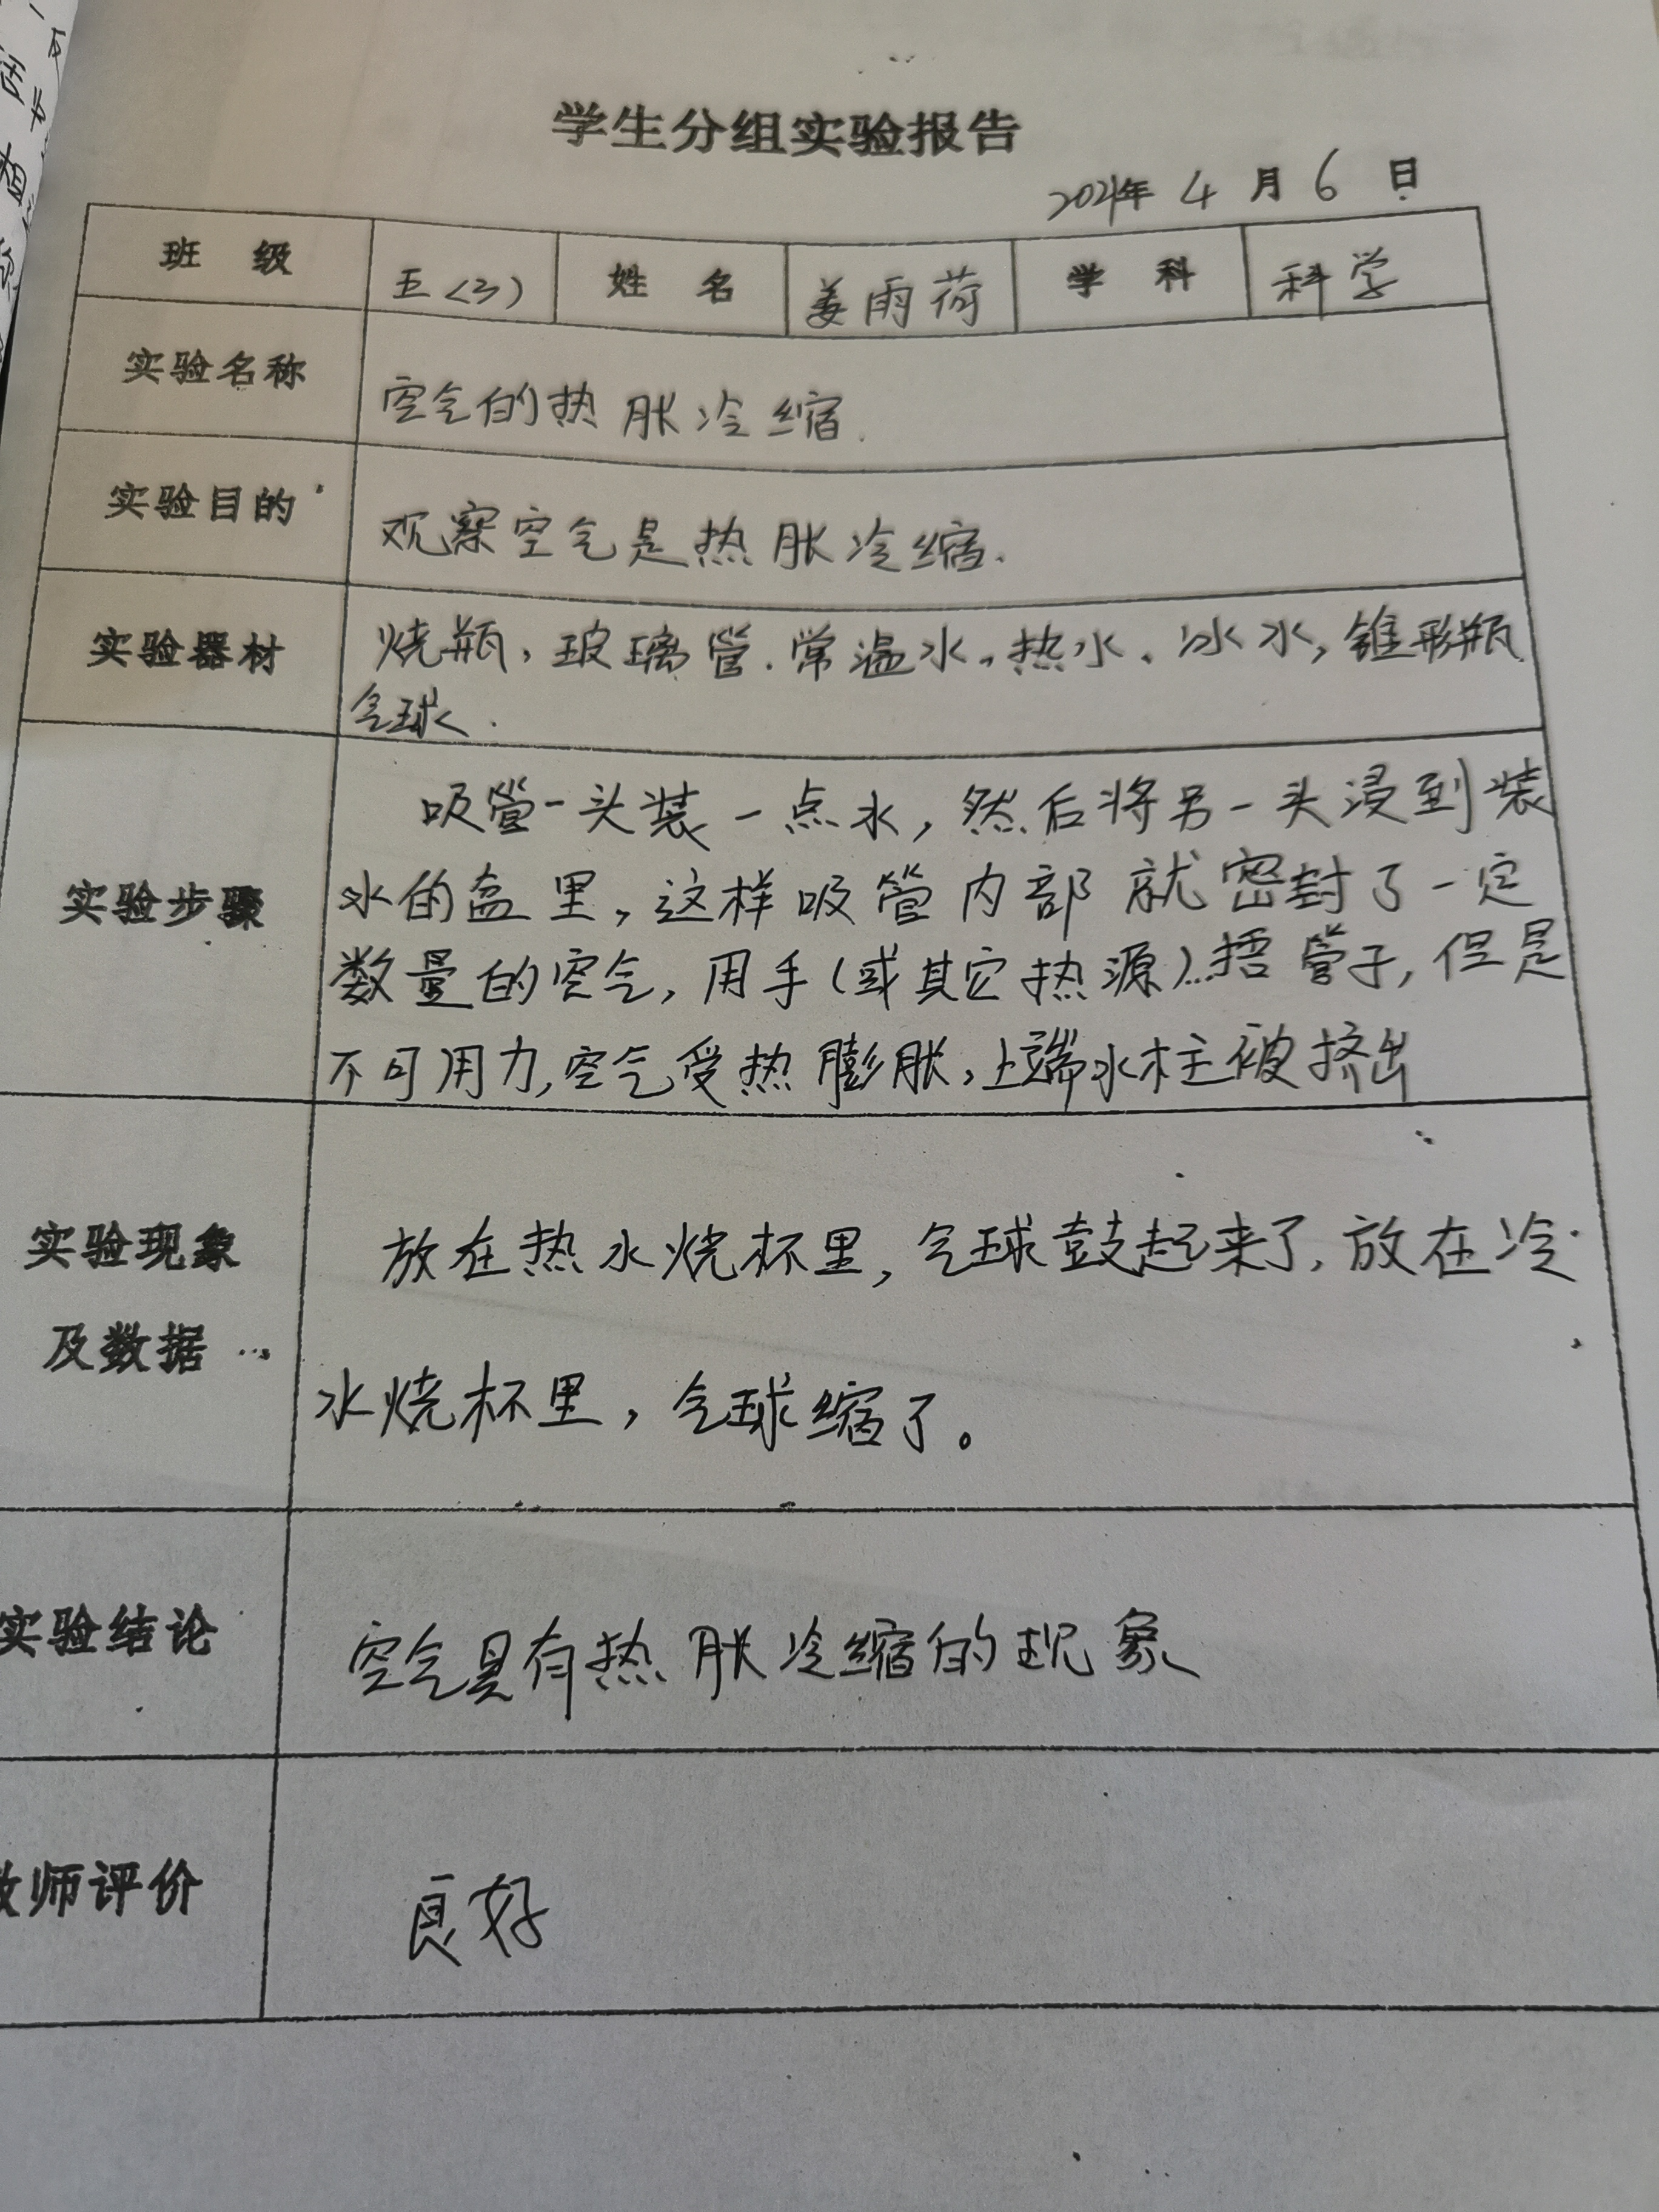 学生分组实验报告
2021年 4 月 6 日
班 级 五(3) 姓 名 姜雨荷 学 科 科学
实验名称 空气的热胀冷缩.
实验目的 观察空气是热胀冷缩.
实验器材 烧瓶,玻璃管.常温水,热水、冰水,锥形瓶
气球.
吸管一头装一点水,然后将另一头浸到装
实验步骤 水的盆里,这样吸管内部就密封了一定
数量的空气,用手(或其它热源)捂管子,但是
不可用力,空气受热膨胀,上端水柱被挤出
实验现象 放在热水烧杯里,气球鼓起来了,放在冷
及数据 水烧杯里,气球缩了。
实验结论 空气具有热胀冷缩的现象
教师评价 良好